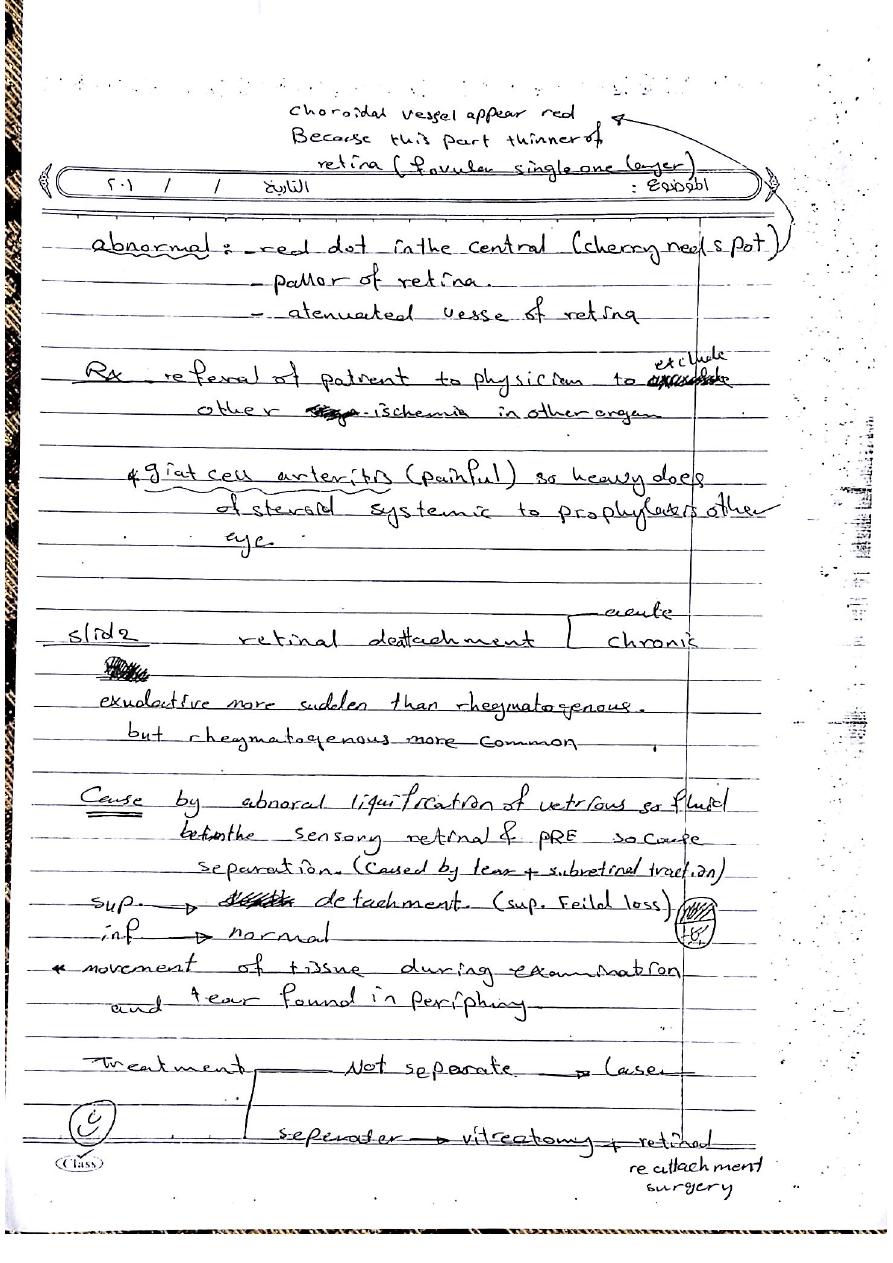 Choroidal vessel appear red
Becaise this part thinner of
retina (fovular single one layer)
الموضوع : التاريخ / / ٢٠١
abnormal : - red dot in the central (cherry need spot)
- pallor of retina.
- atenuated vesse of retina
Rx referal of patient to physician to exclude
other ischemia in other organ
* giat cell arteritis (painful) so heavy does
of steroid systemic to prophylaxis other
eye.
slid 2 retinal deattachment acute
chronic
exudative more sudden than rhegmatogenous.
but rhegmatogenous more common
Cause by abnoral liquification of vetrious so fluid
betn the sensory retinal & PRE so cause
separation. (Caused by tear + subretinal traction)
sup. → detachment. (sup. Feild loss)
inf → normal
* movement of tissue during examination
and tear found in periphiry
Treatment Not seperate → Laser
seperater → vitreatomy + retined
re attachment
surgery
Class